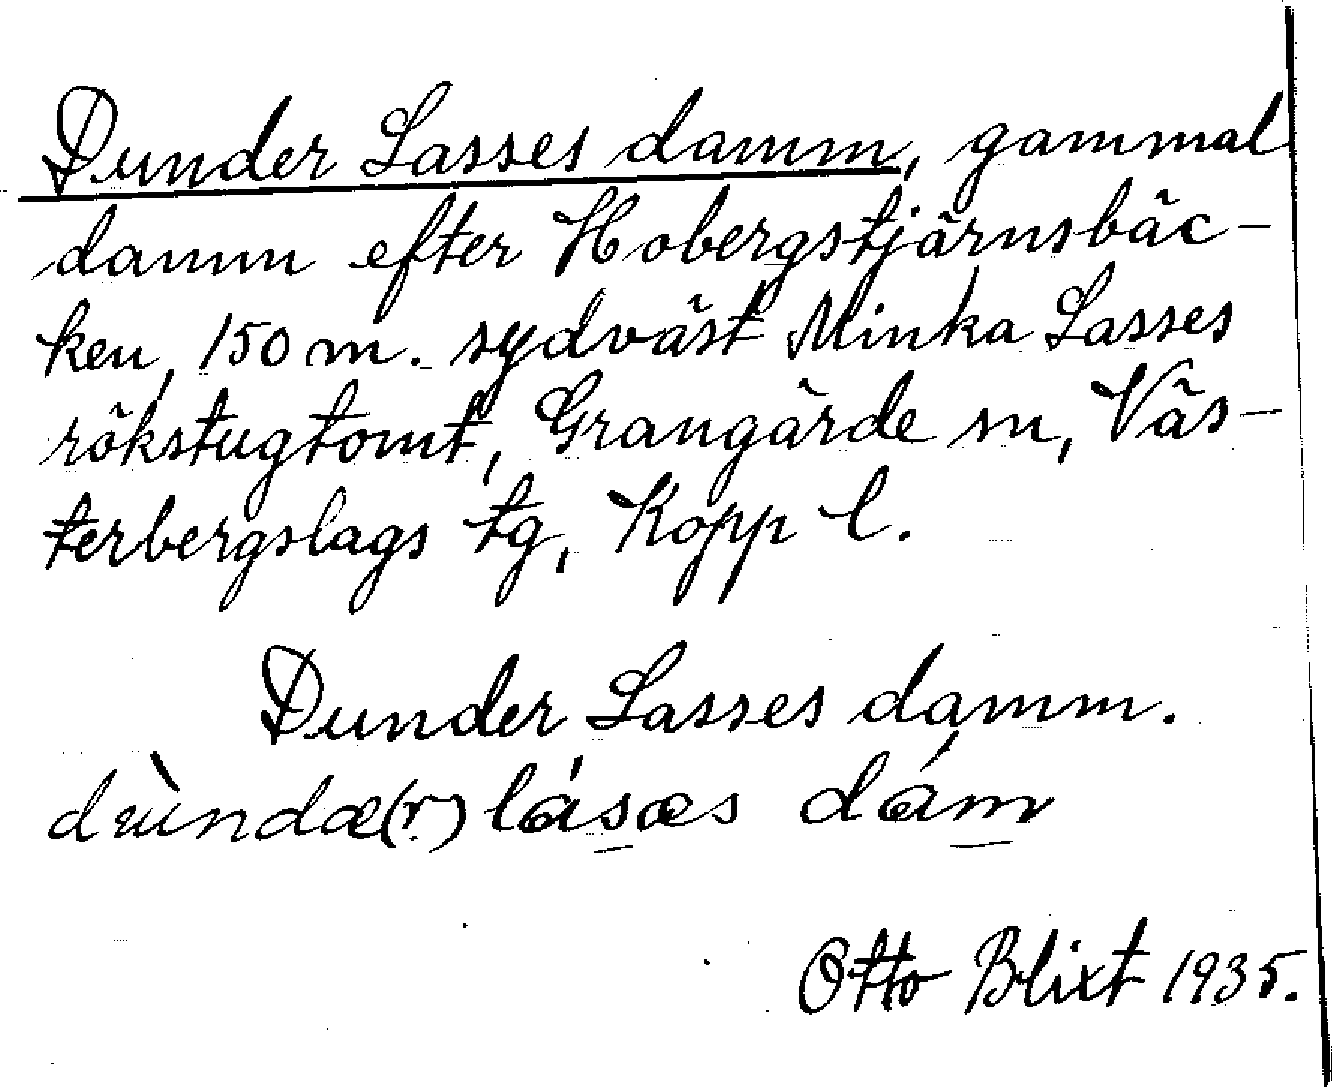 Dunder Lasses damm, gammal
damm efter Hobergstjärnsbäc-
ken, 150 m. sydväst Minka Lasses
rökstugtomt, Grangärde sn, Väs-
terbergslags tg, Kopp l.
Dunder Lasses damm.
dùndæ(r) lásæs dám
Otto Blixt 1935.